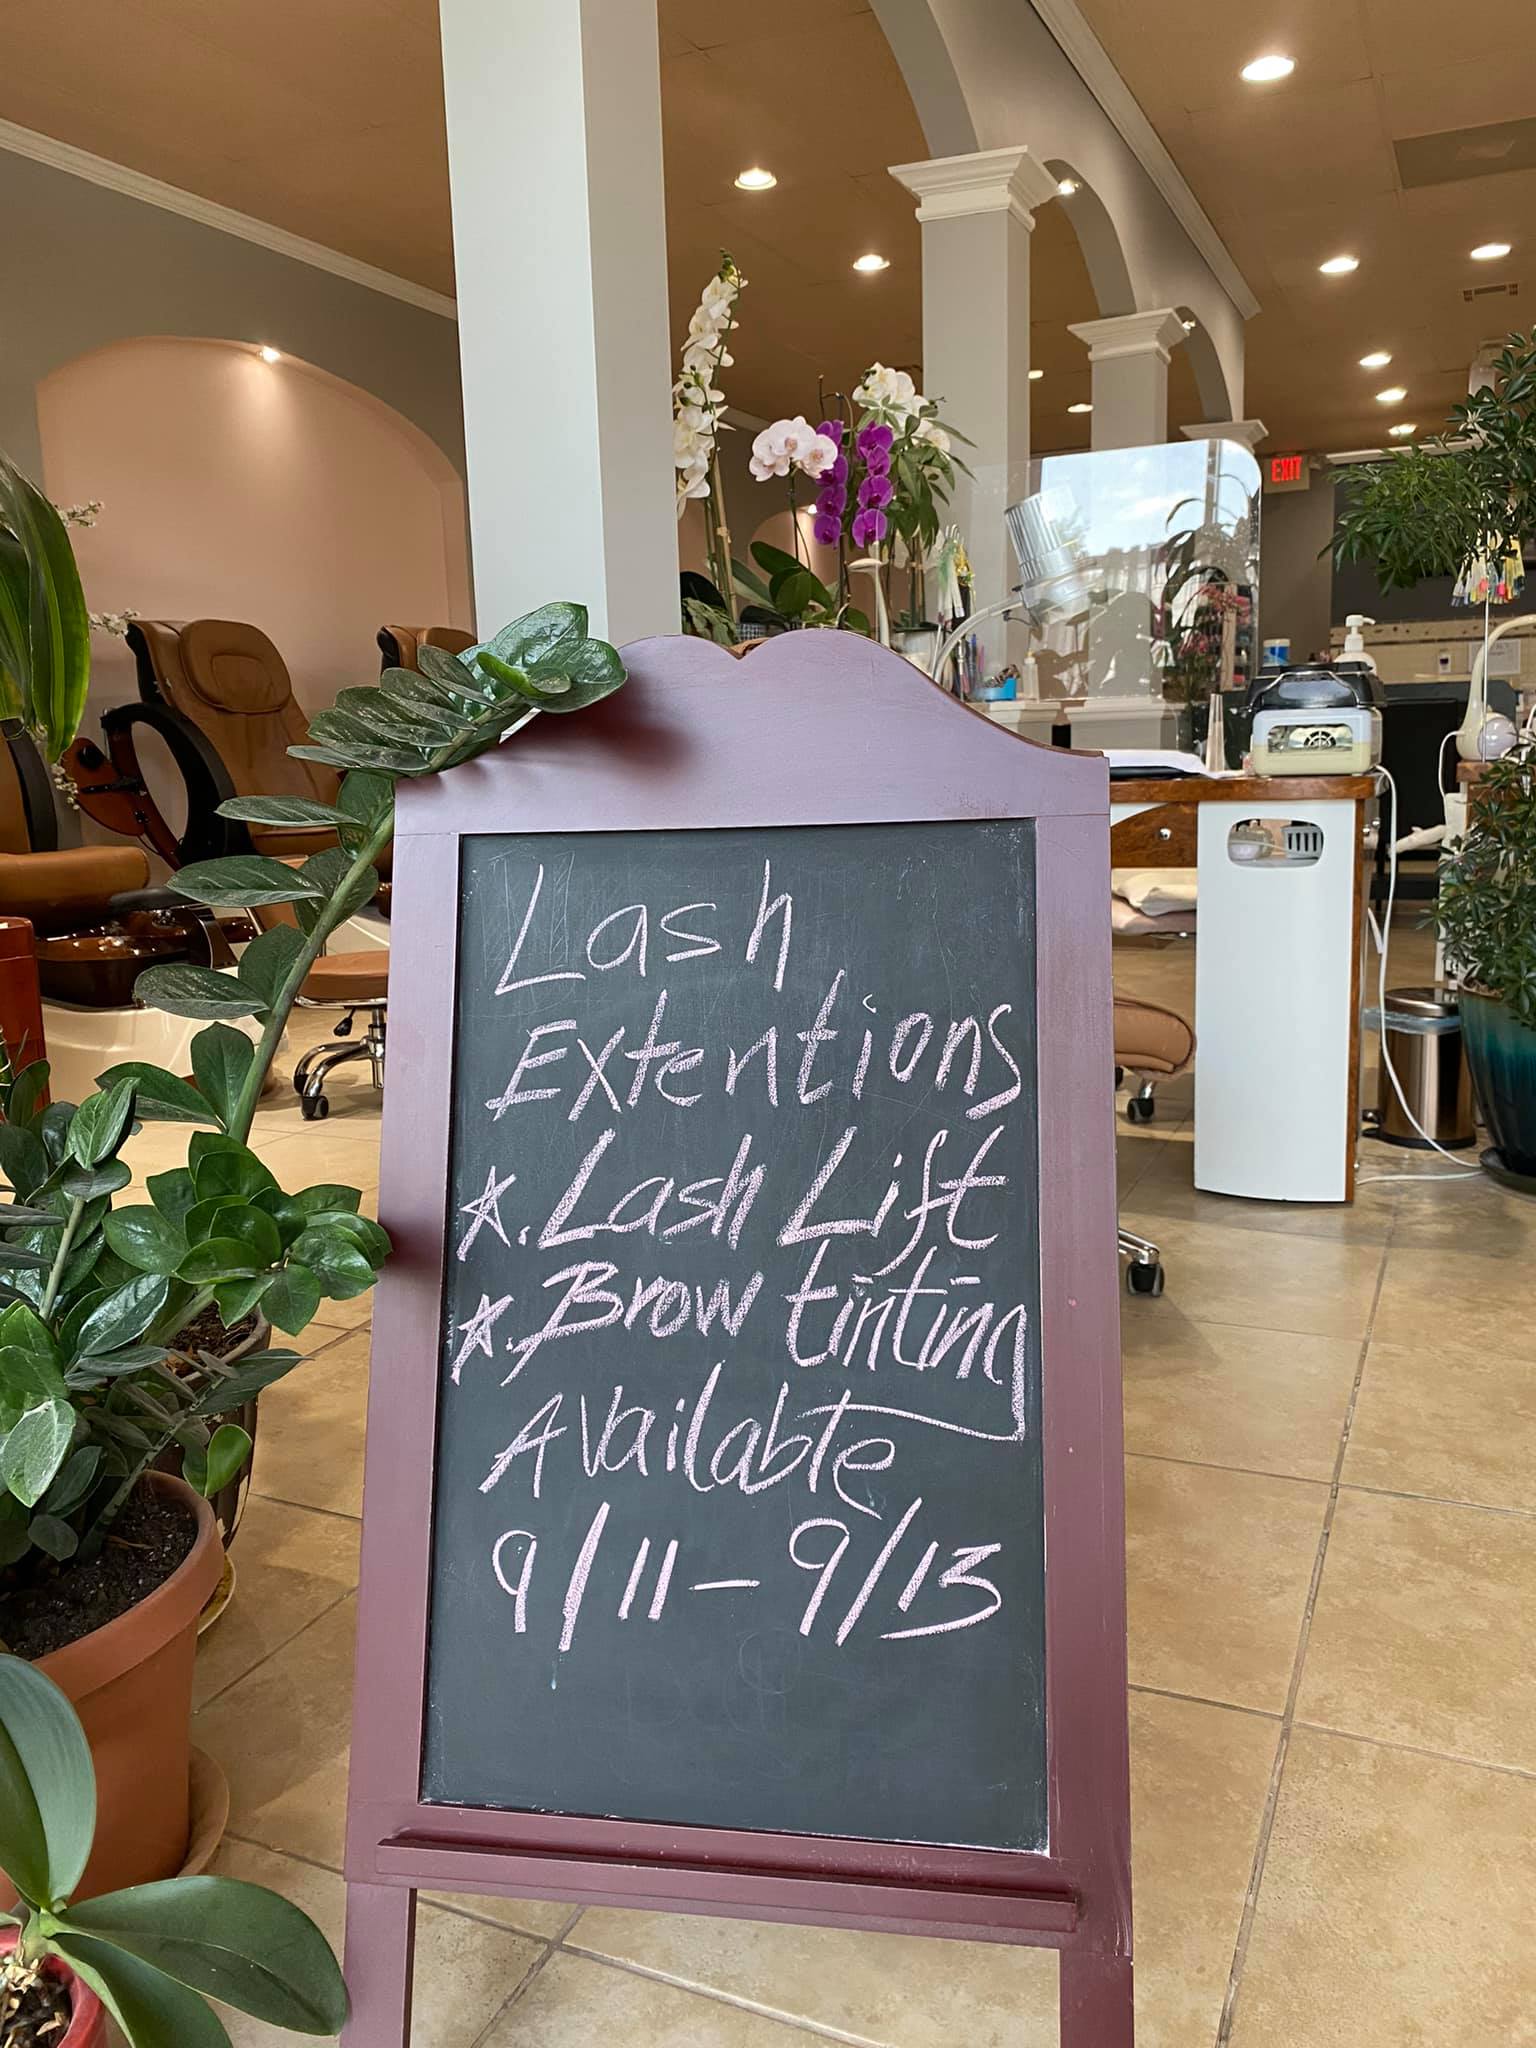 Lash
Extentions
☆. Lash Lift
☆. Brow tinting
Available
9/11 - 9/13
EXIT